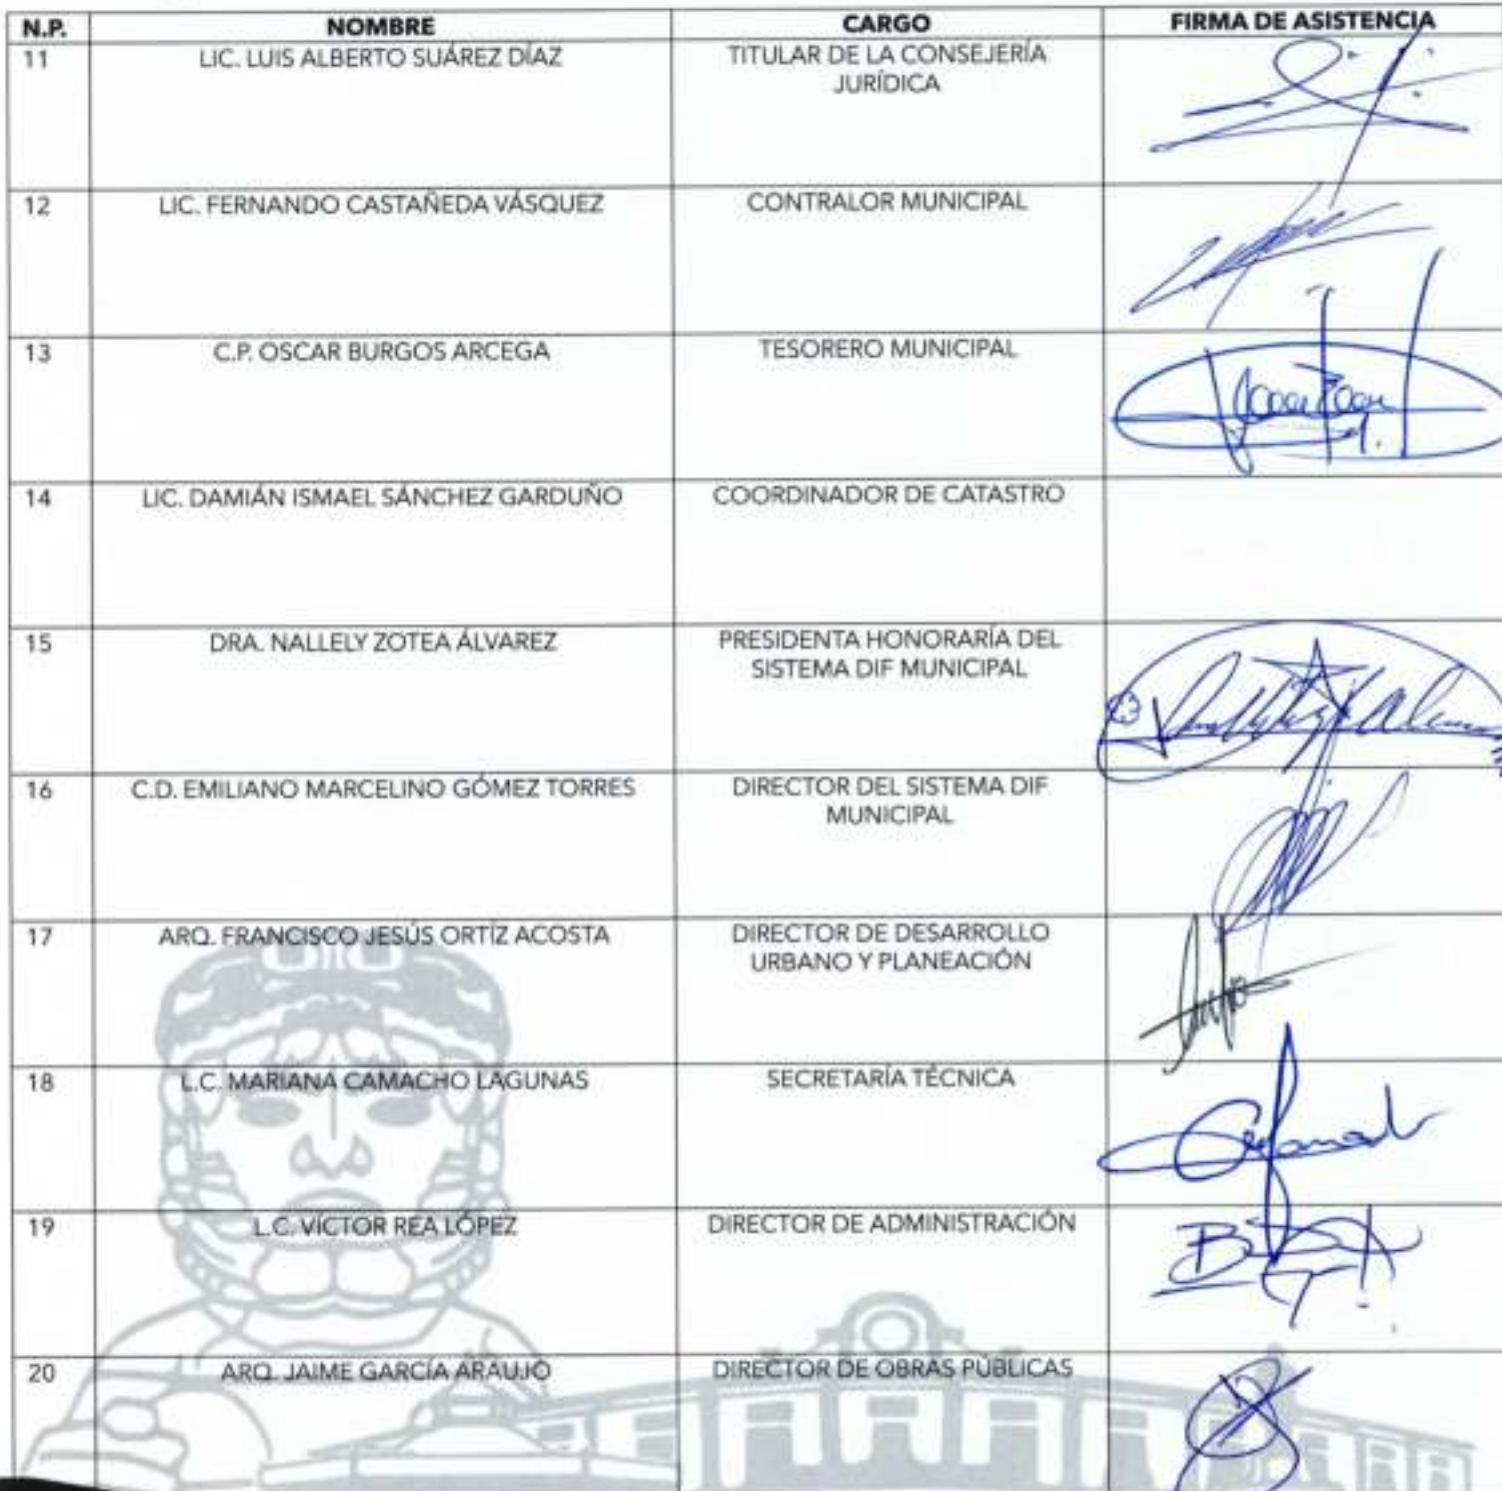 N.P. NOMBRE CARGO FIRMA DE ASISTENCIA
11 LIC. LUIS ALBERTO SUÁREZ DÍAZ TITULAR DE LA CONSEJERÍA
JURÍDICA
12 LIC. FERNANDO CASTAÑEDA VÁSQUEZ CONTRALOR MUNICIPAL
13 C.P. OSCAR BURGOS ARCEGA TESORERO MUNICIPAL
14 LIC. DAMIÁN ISMAEL SÁNCHEZ GARDUÑO COORDINADOR DE CATASTRO
15 DRA. NALLELY ZOTEA ÁLVAREZ PRESIDENTA HONORARÍA DEL
SISTEMA DIF MUNICIPAL
16 C.D. EMILIANO MARCELINO GÓMEZ TORRES DIRECTOR DEL SISTEMA DIF
MUNICIPAL
17 ARQ. FRANCISCO JESÚS ORTÍZ ACOSTA DIRECTOR DE DESARROLLO
URBANO Y PLANEACIÓN
18 L.C. MARIANA CAMACHO LAGUNAS SECRETARÍA TÉCNICA
19 L.C. VÍCTOR REA LÓPEZ DIRECTOR DE ADMINISTRACIÓN
20 ARQ. JAIME GARCÍA ARAUJO DIRECTOR DE OBRAS PÚBLICAS